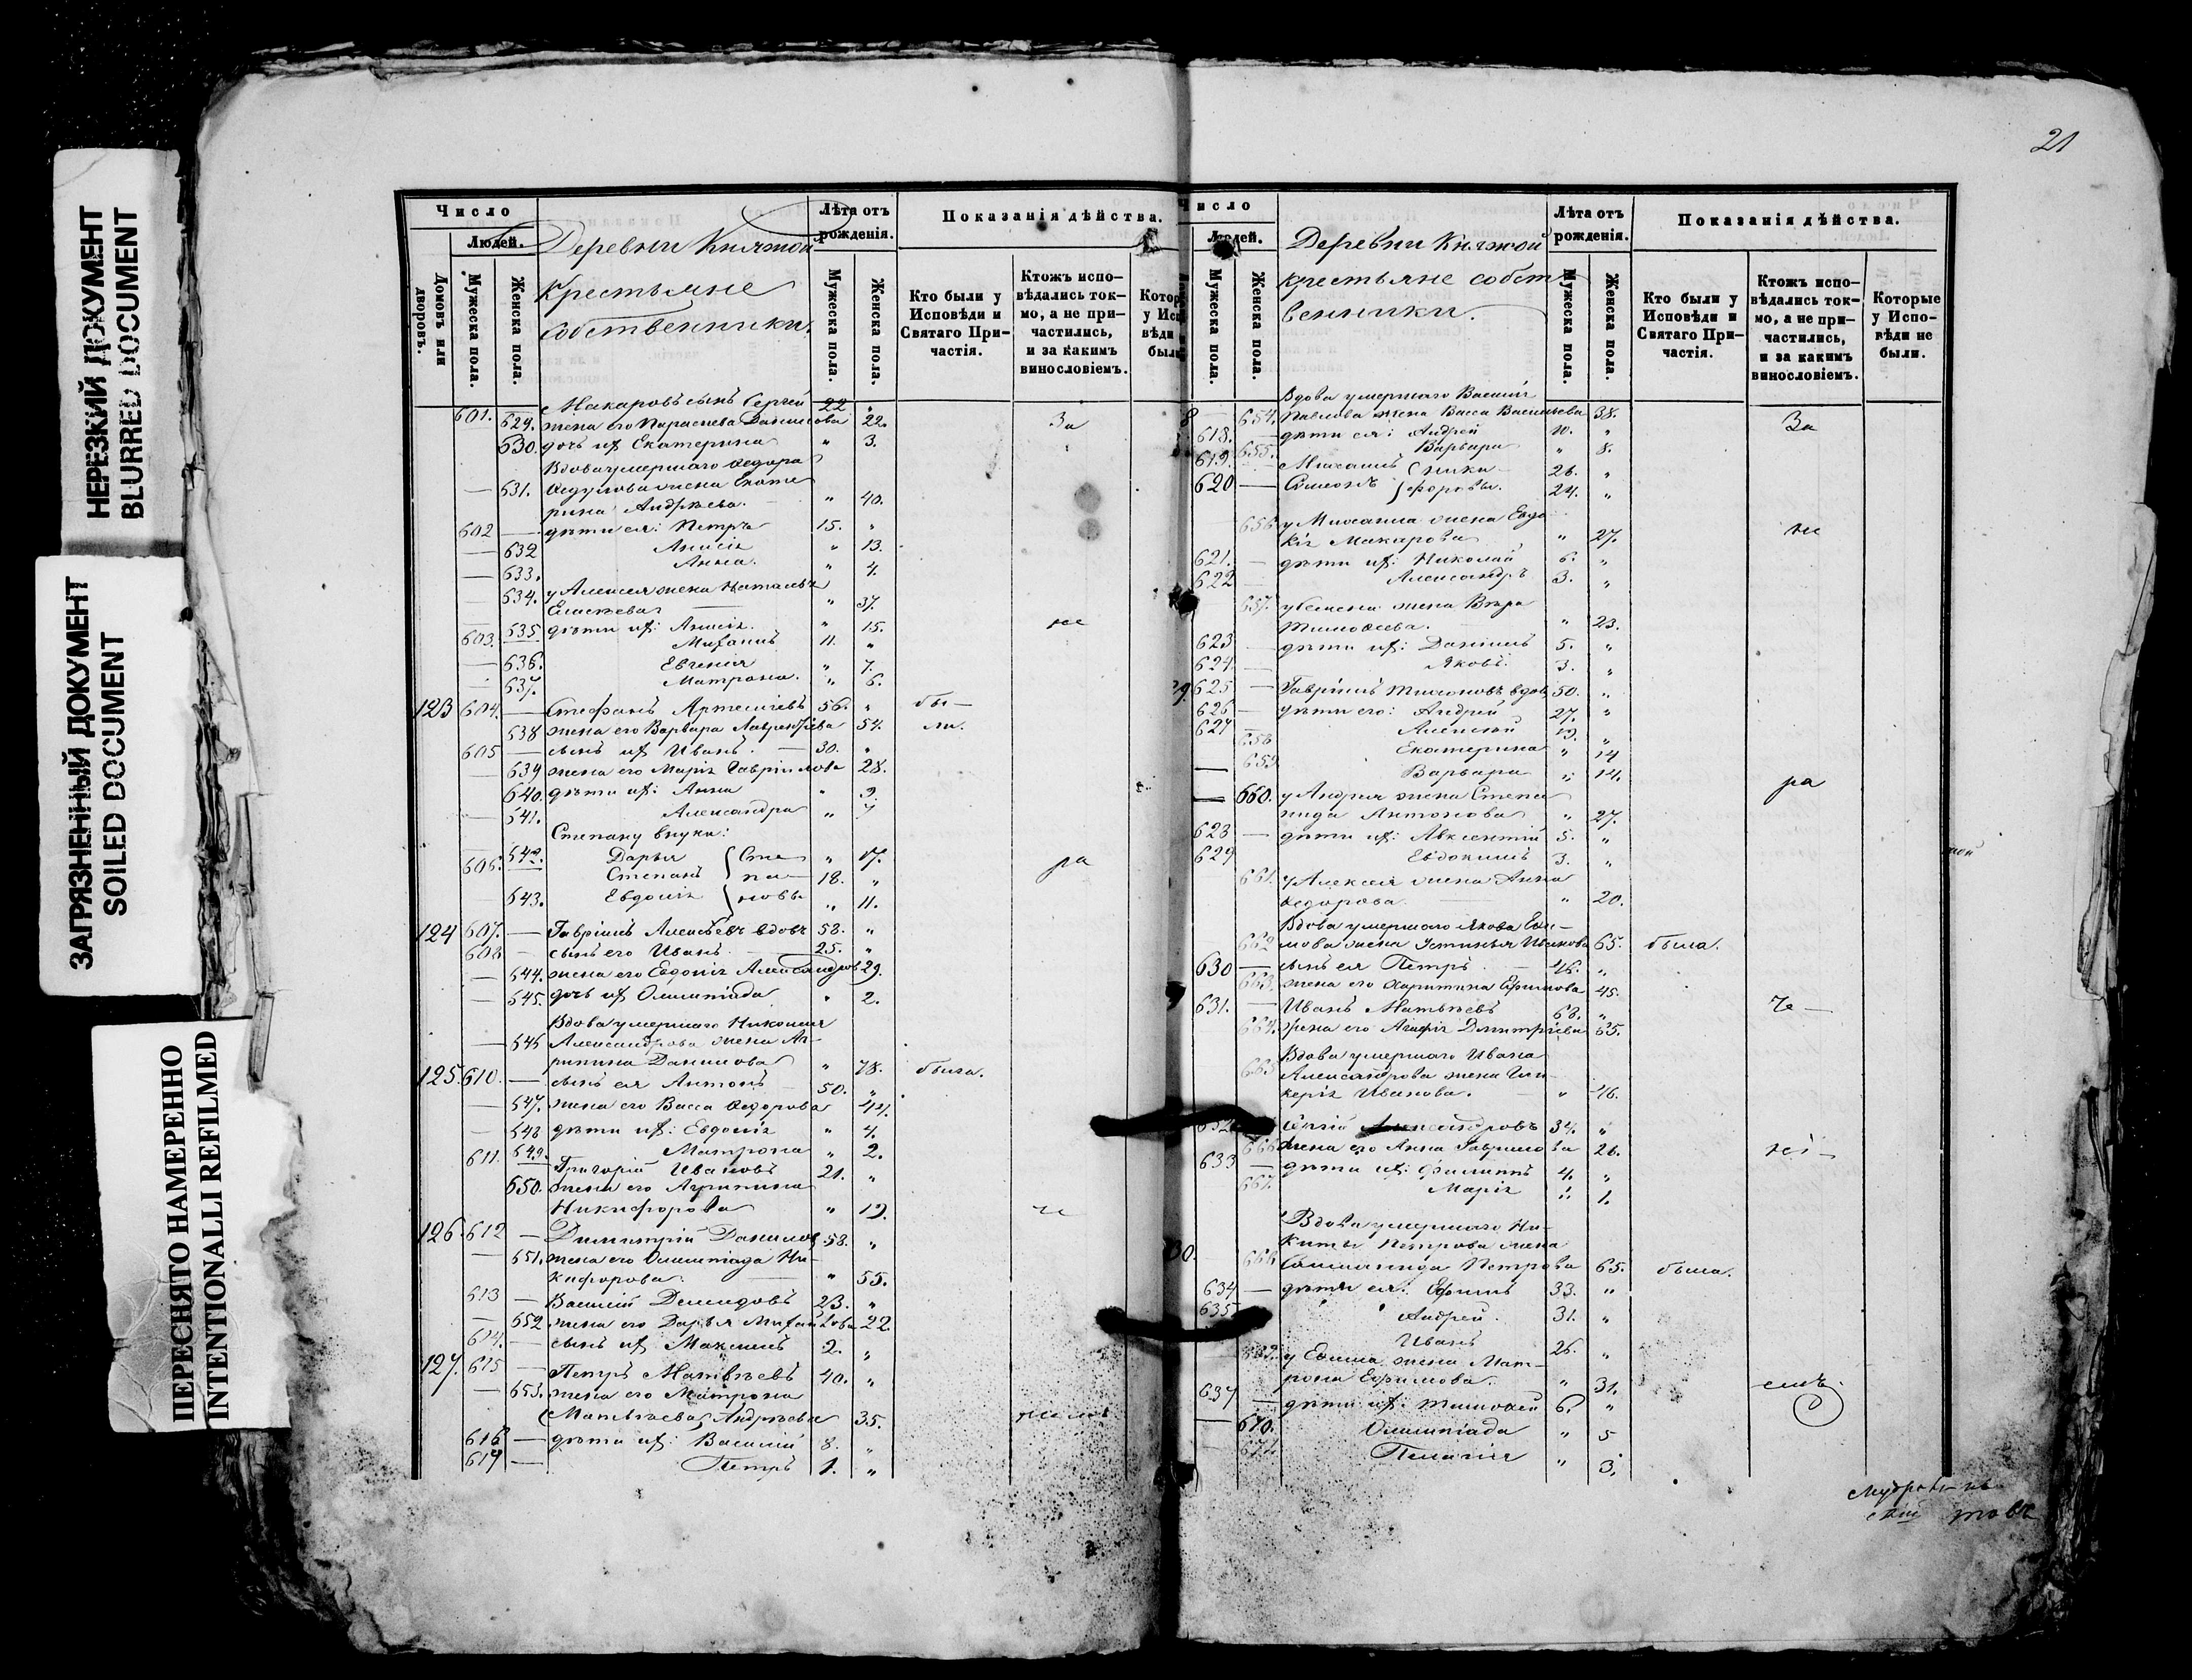 НЕРЕЗКИЙ ДОКУМЕНТ
BLURRED DOCUMENT
ЗАГРЯЗНЕННЫЙ ДОКУМЕНТ
SOILED DOCUMENT
ПЕРЕСНЯТО НАМЕРЕННО
INTENTIONALLI REFILMED
Число
Людей.
Домовъ или дворовъ.
Мужеска пола.
Женска пола.
Деревни Княжой
Крестьяне
собственники.
Лѣта отъ рожденія.
Мужеска пола.
Женска пола.
Показанія дѣйства.
Кто были у Исповѣди и Святаго Причастія.
Ктожъ исповѣдались токмо, а не причастились, и за какимъ винословіемъ.
601. Макаровъ сынъ Сергѣй 22 „
629. жена его Параскева Данилова 22. За
630. дочь их Екатерина „ 3.
Вдова умершаго Ѳедора
631. жена Екате
рина Андрѣева. „ 40.
602 — дѣти ея: Петръ 15. „
— 632 Анисія „ 13.
— 633. Анна. „ 4.
634. у Алексея жена Наталья
„ 37.
635 дѣти их: Анисія. „ 15. не
603. Михаилъ 11. „
— 636. Евгенія „ 7.
637. Матрона. „ 6.
123 604. — Стефанъ 56. „ бы—
638 жена его Варвара Лаврентіева 54. ли.
605 — сынъ их Иванъ. — 30. „
639 жена его Марія Гавріилова 28.
640. дѣти их: Анна „ 9.
641. Александра „ 7
Степану внуки:
642. Дарья Сте „ 17.
606. Степанъ па 18. „ ра
643. Евдокія новы „ 11.
124 607. — Гавріилъ Алексѣевъ вдовъ 58. „
608 — сынъ его Иванъ. 25. „
— 644. жена его Евдокія Александров 29.
— 645. дочь их Олимпіада „ 2.
Вдова умершаго
— 646 Александрова жена Аг-
рипина Данилова „ 78. была.
125. 610. — сынъ ея Антонъ 50. „
— 647. жена его Васса Ѳедорова 44.
— 648 дѣти их: Евдокія „ 4.
649. Матрона „ 2.
611. Григорій Ивановъ 21. „
650. жена его Агрипина
Никифорова „ 19.
126 612 — Димитрій Данилов 58. „
— 651. жена его Олимпіада Ни-
кифорова. „ 55.
613 — Василій Демидовъ 23. „
— 652 жена его Дарья Михайлова 22.
614. — сынъ их Максимъ 2. „
127. 615 — Петръ Матвѣевъ 40. „
— 653. жена его Матрона
(Матвѣева) Андрѣева 35.
616 — дѣти их: Василій 8. „
617 — Петръ 1. „
21
Число
Людей.
Мужеска пола.
Женска пола.
Деревни Княжой
крестьяне собст
венники.
Лѣта отъ рожденія.
Мужеска пола.
Женска пола.
Показанія дѣйства.
Кто были у Исповѣди и Святаго Причастія.
Ктожъ исповѣдались токмо, а не причастились, и за какимъ винословіемъ.
Которые у Исповѣди не были.
Вдова умершаго Василія
654. Павлова жена Васса Васильева 38. За
618. — дѣти ея: Андрей 10. „
655. Варвара „ 8.
619. — Михаилъ Ники 26. „
620 — Симеонъ форовы. 24. „
656 у Михаила жена Евдо
кія Макарова „ 27. не
621. — дѣти их: Николай 6. „
622 Александръ 3. „
657. у Семена жена Вѣра
Тимоѳеева. „ 23.
623 — дѣти их: Даніилъ 5. „
624. — Яковъ. 3. „
625 — Гавріилъ вдов 50. „
626 — дѣти его: Андрей 27. „
627 Алексѣй 19. „
658 Екатерина „ 14
— 659 Варвара „ 14.
— 660. у Андрея жена Степа ра
нида Антонова „ 27.
628 — дѣти их: Авксентій 5. „
629 Евдокимъ 3. „
661. у Алексея жена Анна
Ѳедорова. „ 20.
Вдова умершаго Якова
662 жена Устинья Иванова 65. была.
630 — сынъ ея Петръ. — 46. „
663. жена его Харитина Ефимова 45.
631. — Иванъ Матвѣевъ 68. „ че —
664. жена его Агафія Димитріева 65.
Вдова умершаго Ивана
665 Александрова жена
Иванова. „ 46.
632 Сергій Александровъ 34. „
666 жена его Анна Гаврилова 26. ні —
633 — дѣти их: Филиппъ 4. „
667. Марія „ 1.
Вдова умершаго Ни-
киты Петрова жена
Петрова 65. была.
634 — дѣти ея: Ефимъ 33. „
635 Андрей. 31. „
Иванъ 26. „
у Ефима жена Мат-
рона Ефимова. „ 31. емъ.
637 — дѣти их: Тимоѳей 6. „
— 670. Олимпіада „ 5
671. Пелагія „ 3.